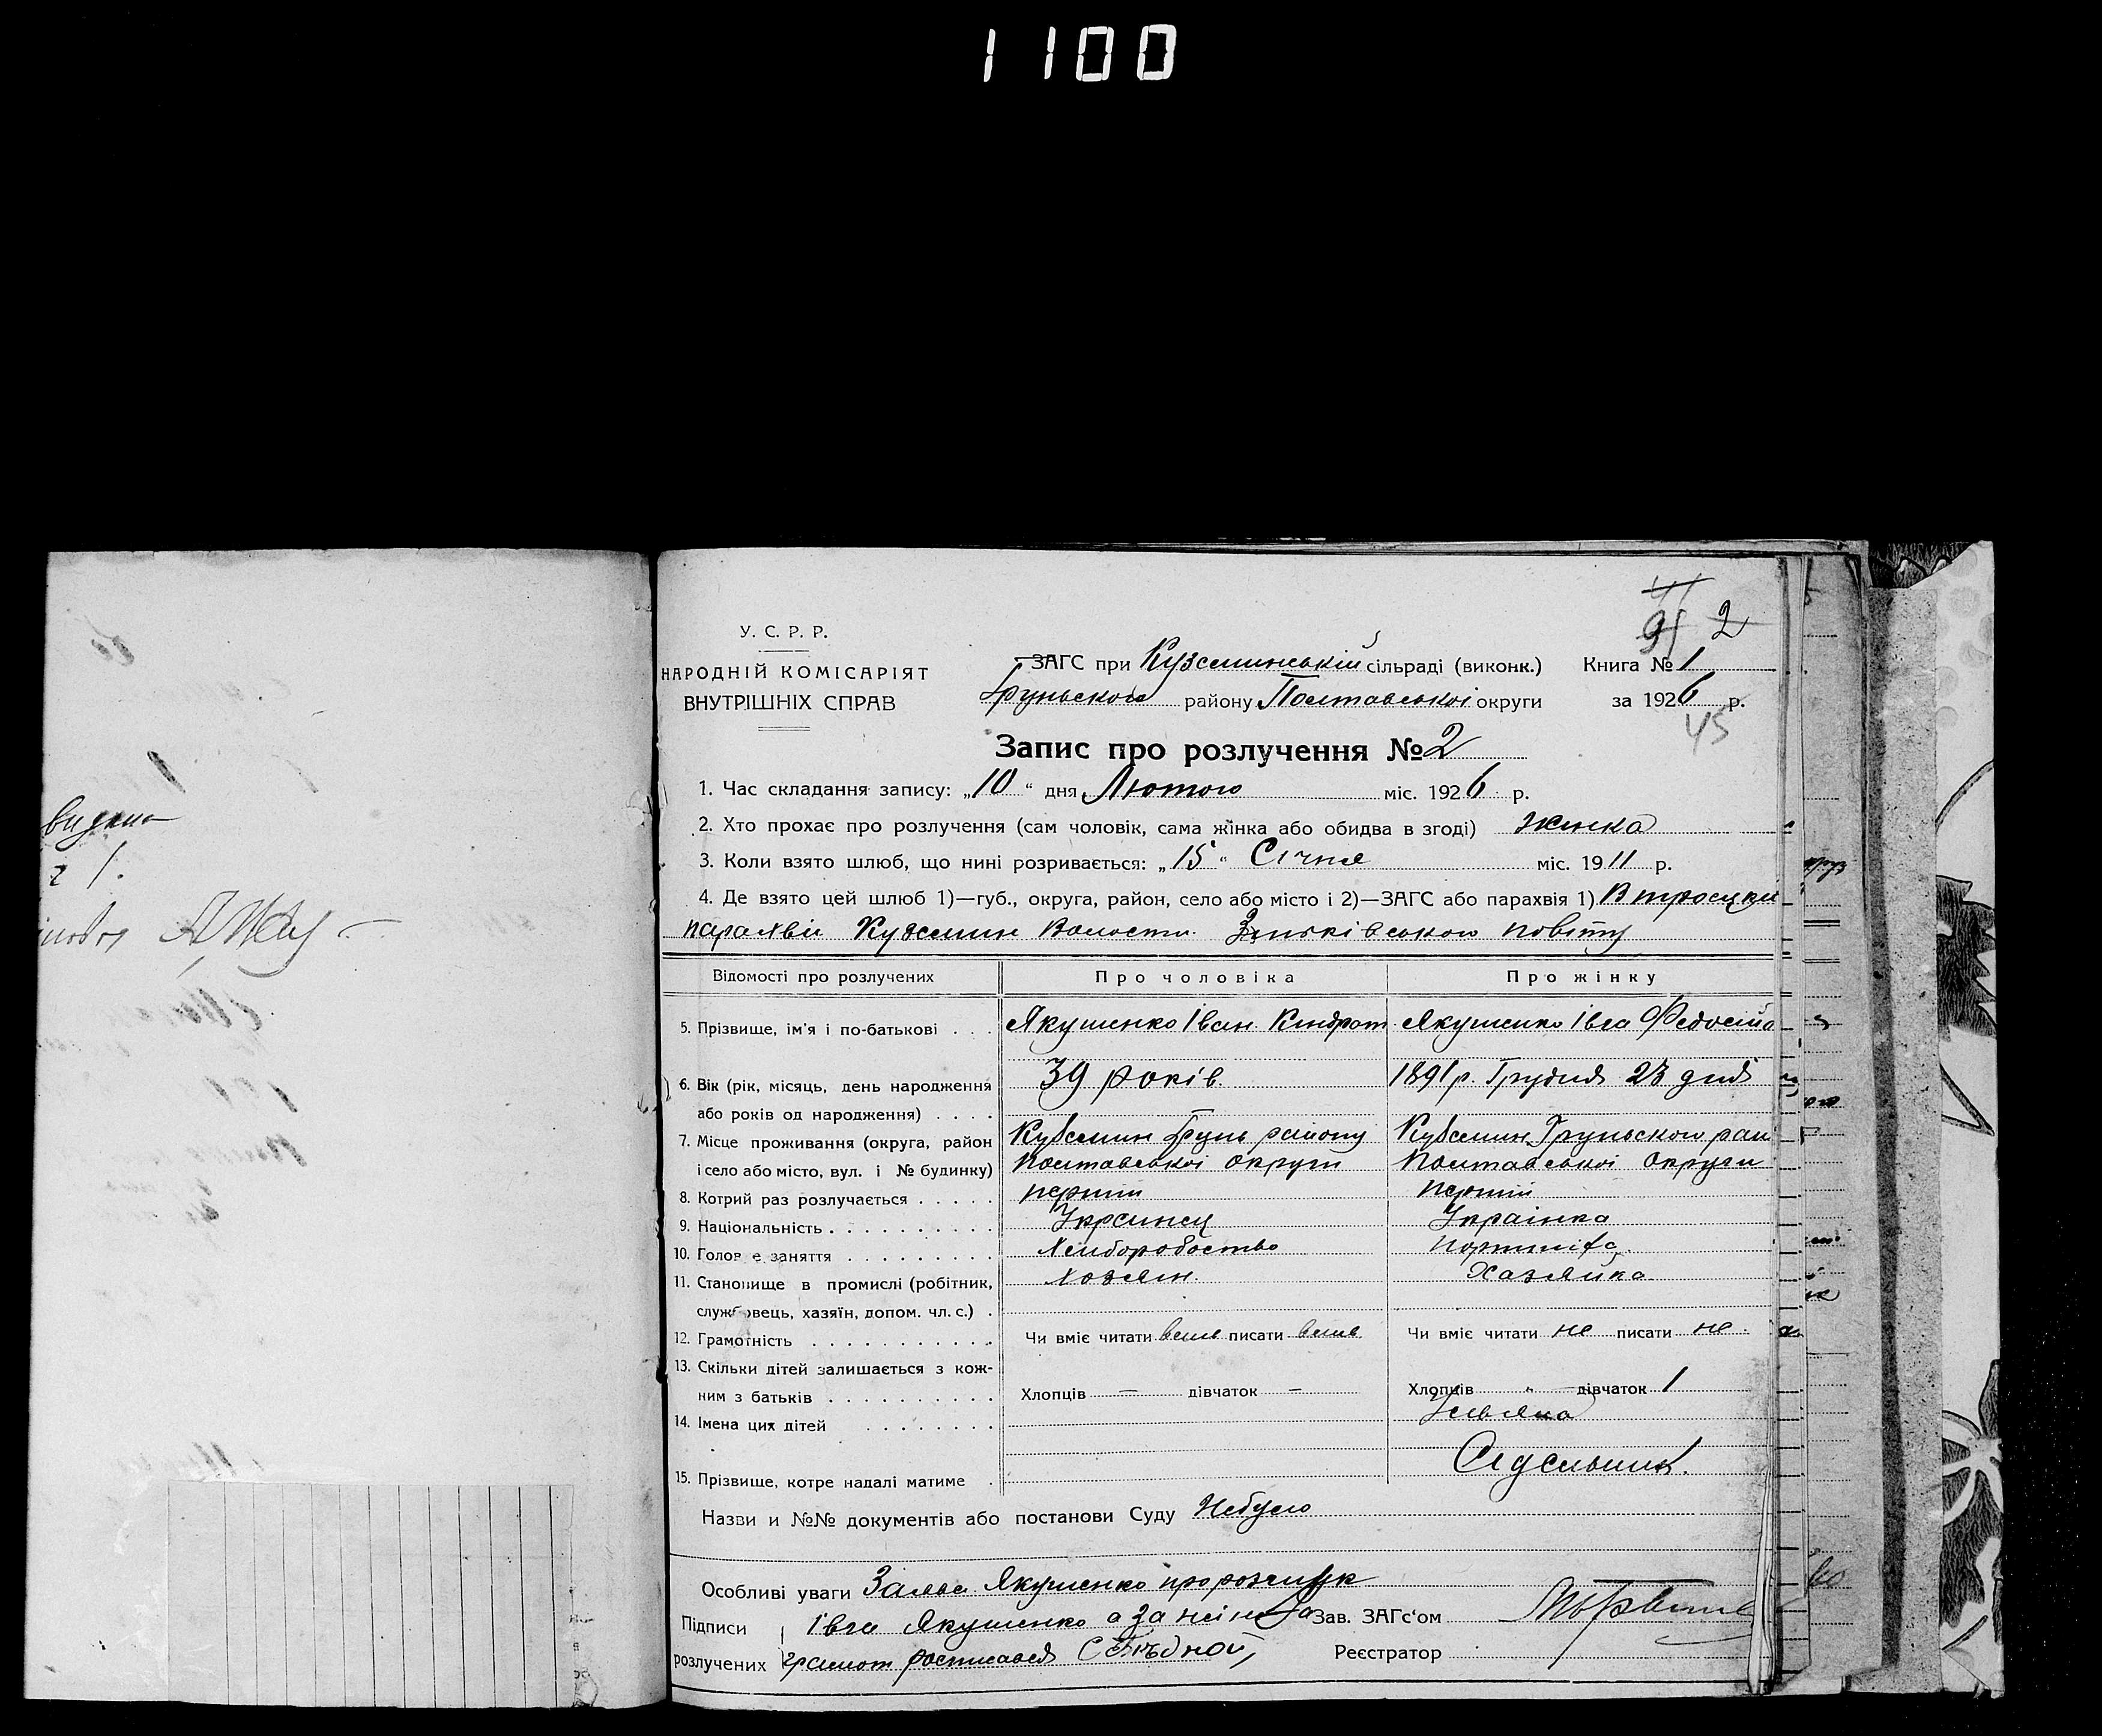 1100
2
У. С. Р. Р.
НАРОДНІЙ КОМІСАРІЯТ
ВНУТРІШНІХ СПРАВ
ЗАГС при Куземинській сільраді (виконк.) Книга № 1
Груньского району Полтавської округи за 1926 р.
45
Запис про розлучення № 2
1. Час складання запису: „10“ дня Лютого міс. 1926 р.
2. Хто прохає про розлучення (сам чоловік, сама жінка або обидва в згоді) жинка
3. Коли взято шлюб, що нині розривається: „15“ Січня міс. 1911 р.
4. Де взято цей шлюб 1)—губ., округа, район, село або місто і 2)—ЗАГС або парахвія 1) В троецкий
парахвіи Куземин Волости Зіньківського повіту
Відомості про розлучених Про чоловіка Про жінку
5. Прізвище, ім'я і по-батькові . . . Якушенко Іван Кіндрат Якушенко Івга Федосіи
6. Вік (рік, місяць, день народження 39 років 1891 р. Грудня 23 дня
або років од народження) . . . .
7. Місце проживання (округа, район Куземин Грунь району Куземин Груньского рай
і село або місто, вул. і № будинку) Полтавської округи Полтавської округи
8. Котрий раз розлучається . . . . . перший перший
9. Національність . . . . . . . . . . Українец Українка
10. Голов е заняття . . . . . . . . . Хлиборобство
11. Становище в промислі (робітник, Хозяин. Хазяйка
службовець, хазяїн, допом. чл. с.) .
12. Грамотність . . . . . . . . . . . Чи вміє читати писати Чи вміє читати не писати не
13. Скільки дітей залишається з кож-
ним з батьків . . . . . . . . . . Хлопців — дівчаток — Хлопців " дівчаток 1
14. Імена цих дітей . . . . . . . . Ульяна
15. Прізвище, котре надалі матиме .
Назви и №№ документів або постанови Суду Небуло
Особливі уваги Заява Якушенко про
Підписи Івга Якушенко а за Зав. ЗАГс'ом
розлучених грамот росписався Реєстратор